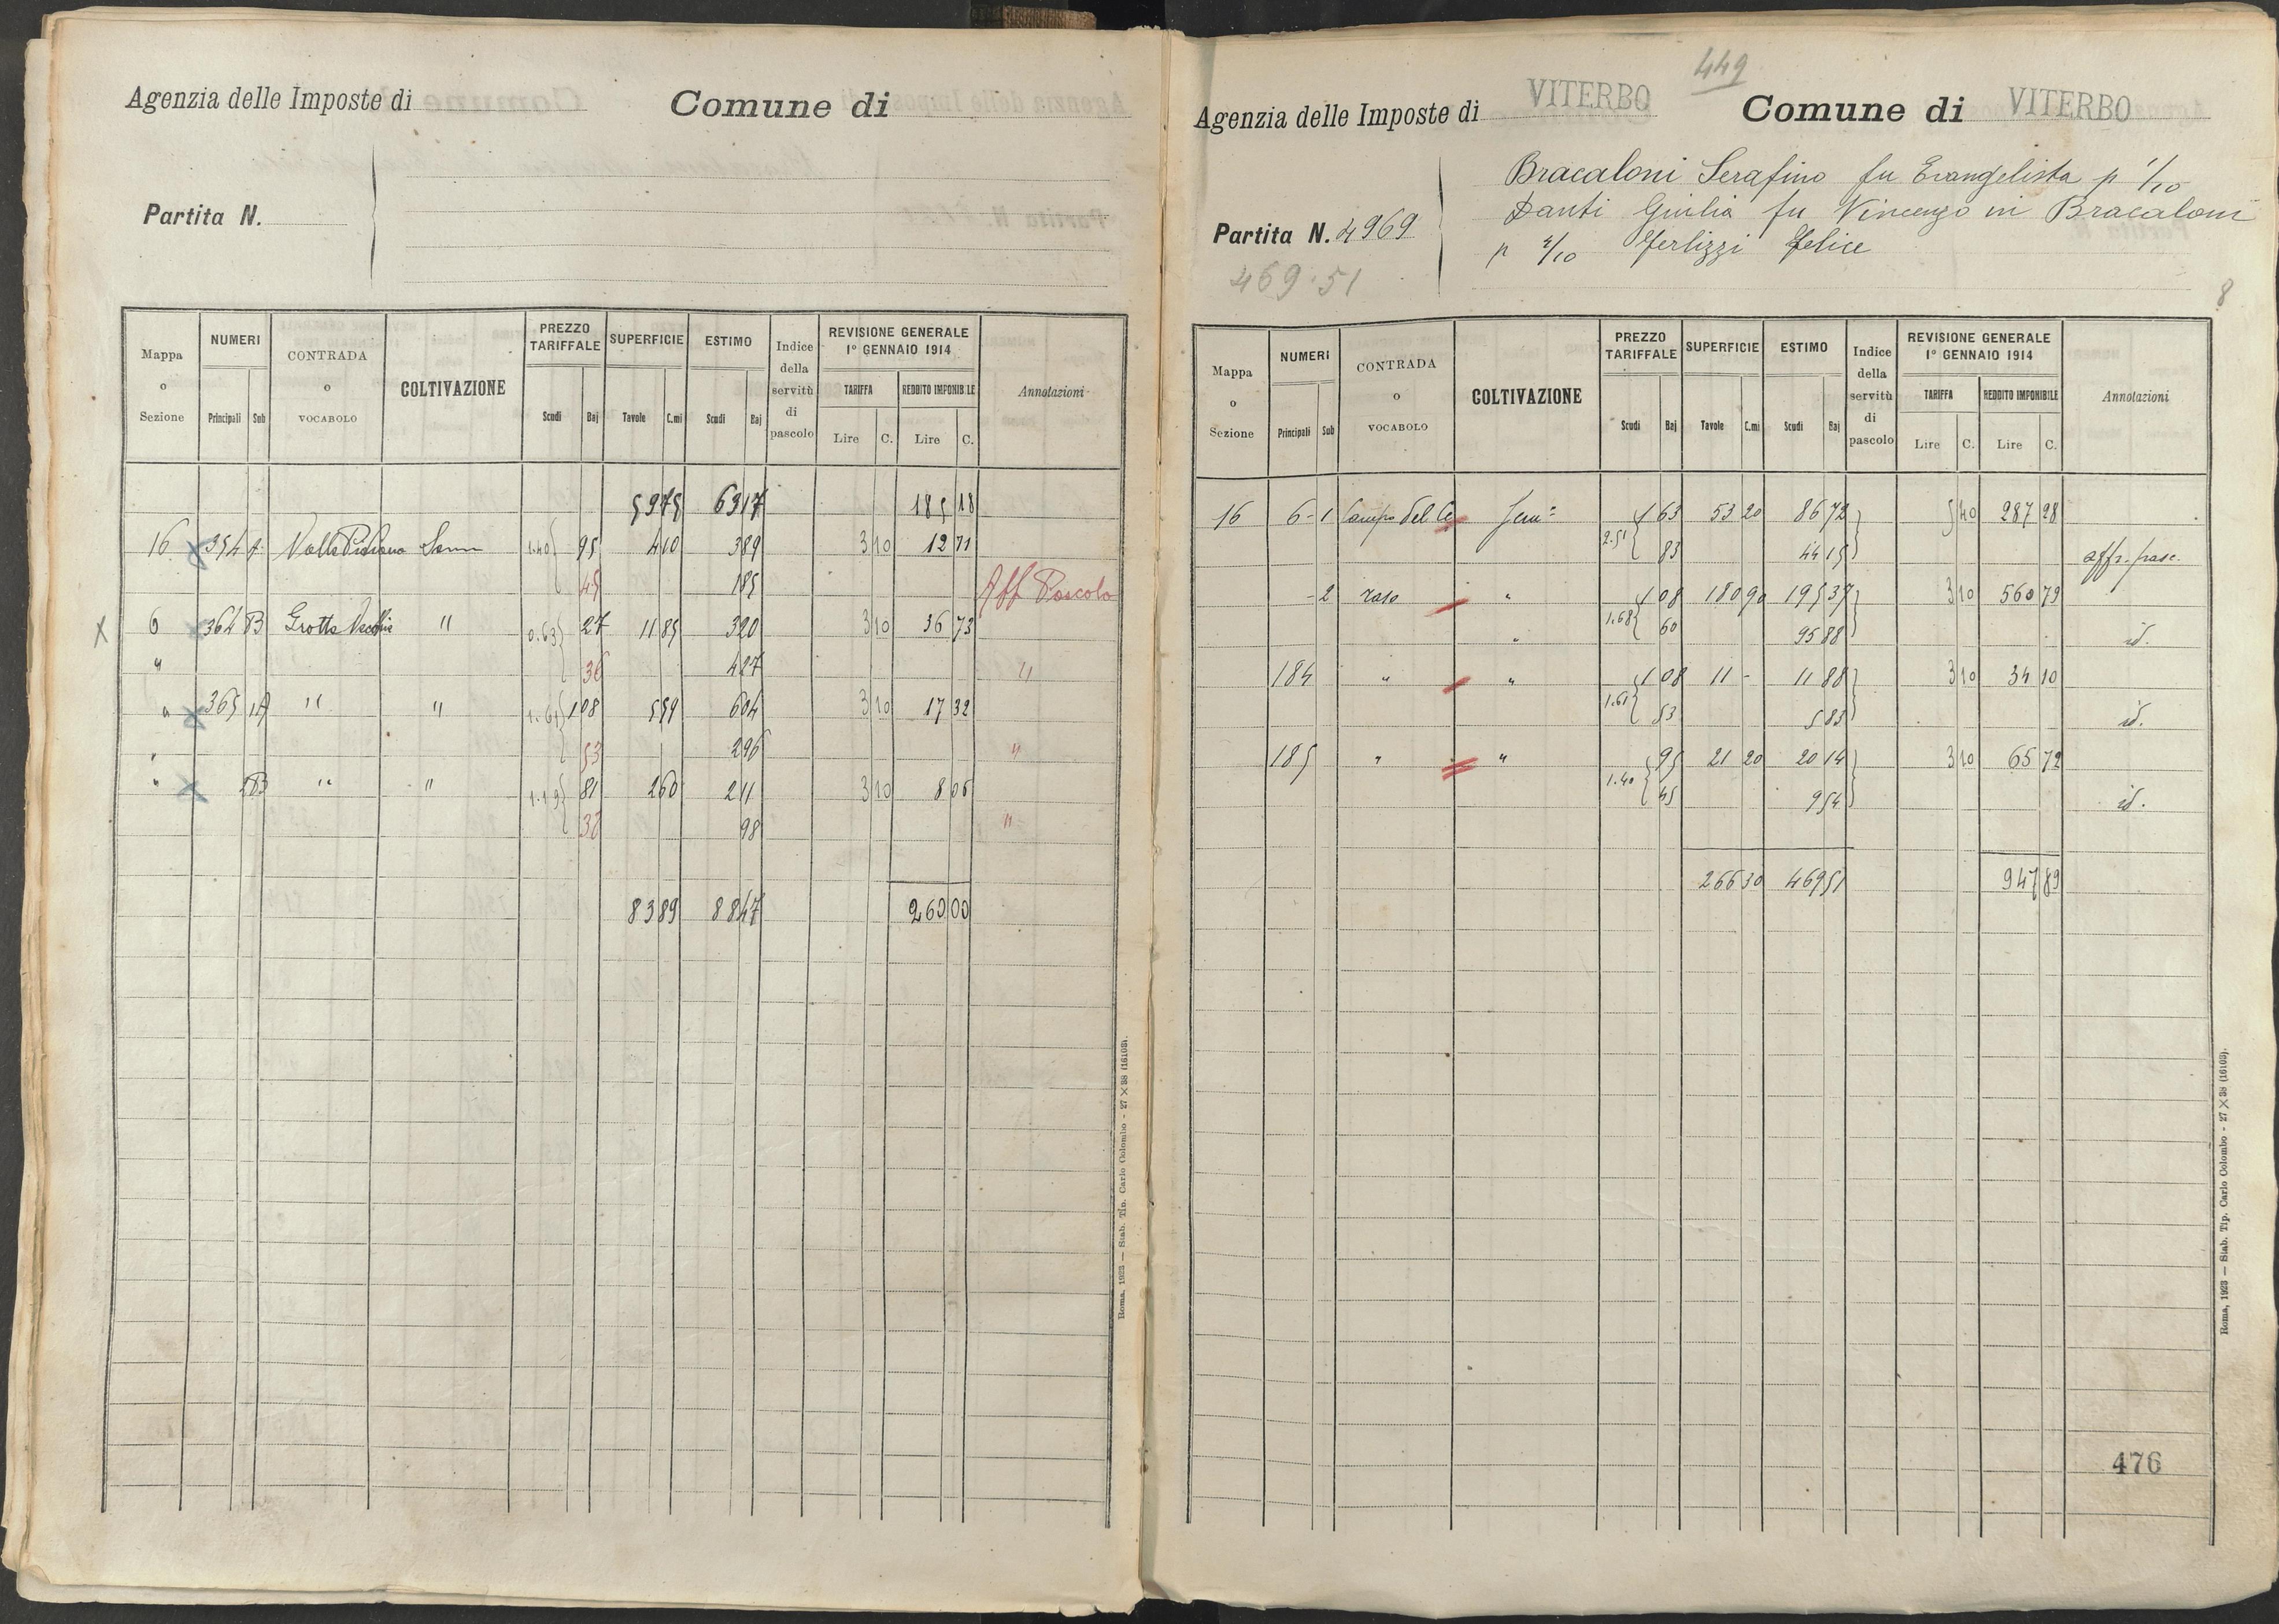 Agenzia delle Imposte di
Comune di
Partita N.
Mappa o Sezione
NUMERI
Principali Sub
CONTRADA o VOCABOLO
COLTIVAZIONE
PREZZO TARIFFALE
Scudi Baj
SUPERFICIE
Tavole C.mi
ESTIMO
Scudi Baj
Indice della servitù di pascolo
REVISIONE GENERALE
1° GENNAIO 1914
TARIFFA
Lire C.
REDDITO IMPONIBILE
Lire C.
Annotazioni
5975 6317 185 18
16 354 1.40 95 410 389 3 10 12 71
45 185 Aff Pascolo
6 364 B Grotte Vecchie " 0.63 27 11 85 320 3 10 36 73
" 36 427 "
" 365 1A " " 1.61 1 08 559 604 3 10 17 32
" 53 296 "
" 2B " " 1.19 81 260 211 3 10 8 06
38 98 "
8389 8847 260 00
Roma, 1923 — Stab. Tip. Carlo Colombo - 27 × 38 (16103).
449
Agenzia delle Imposte di VITERBO
Comune di VITERBO
Bracaloni Serafino fu Evangelista p 1/10
Santi Giulia fu Vincenzo in Bracaloni
Partita N. 4969
p 4/10 Felice
469.51
8
Mappa o Sezione
NUMERI
Principali Sub
CONTRADA o VOCABOLO
COLTIVAZIONE
PREZZO TARIFFALE
Scudi Baj
SUPERFICIE
Tavole C.mi
ESTIMO
Scudi Baj
Indice della servitù di pascolo
REVISIONE GENERALE
1° GENNAIO 1914
TARIFFA
Lire C.
REDDITO IMPONIBILE
Lire C.
Annotazioni
16 6-1 Campo del Ce Sem° 1 63 53 20 86 72 5 40 287 28
2.51 83 44 15 affr. pasc.
-2 raso " 1 08 180 90 195 37 3 10 560 79
1.68 60 " 95 88 id.
184 " " 1 08 11 - 11 88 3 10 34 10
1.61 53 5 83 id.
185 " " 95 21 20 20 14 3 10 65 72
1.40 45 9 54 id.
266 30 469 51 947 89
476
Roma, 1923 — Stab. Tip. Carlo Colombo - 27 × 38 (16103).